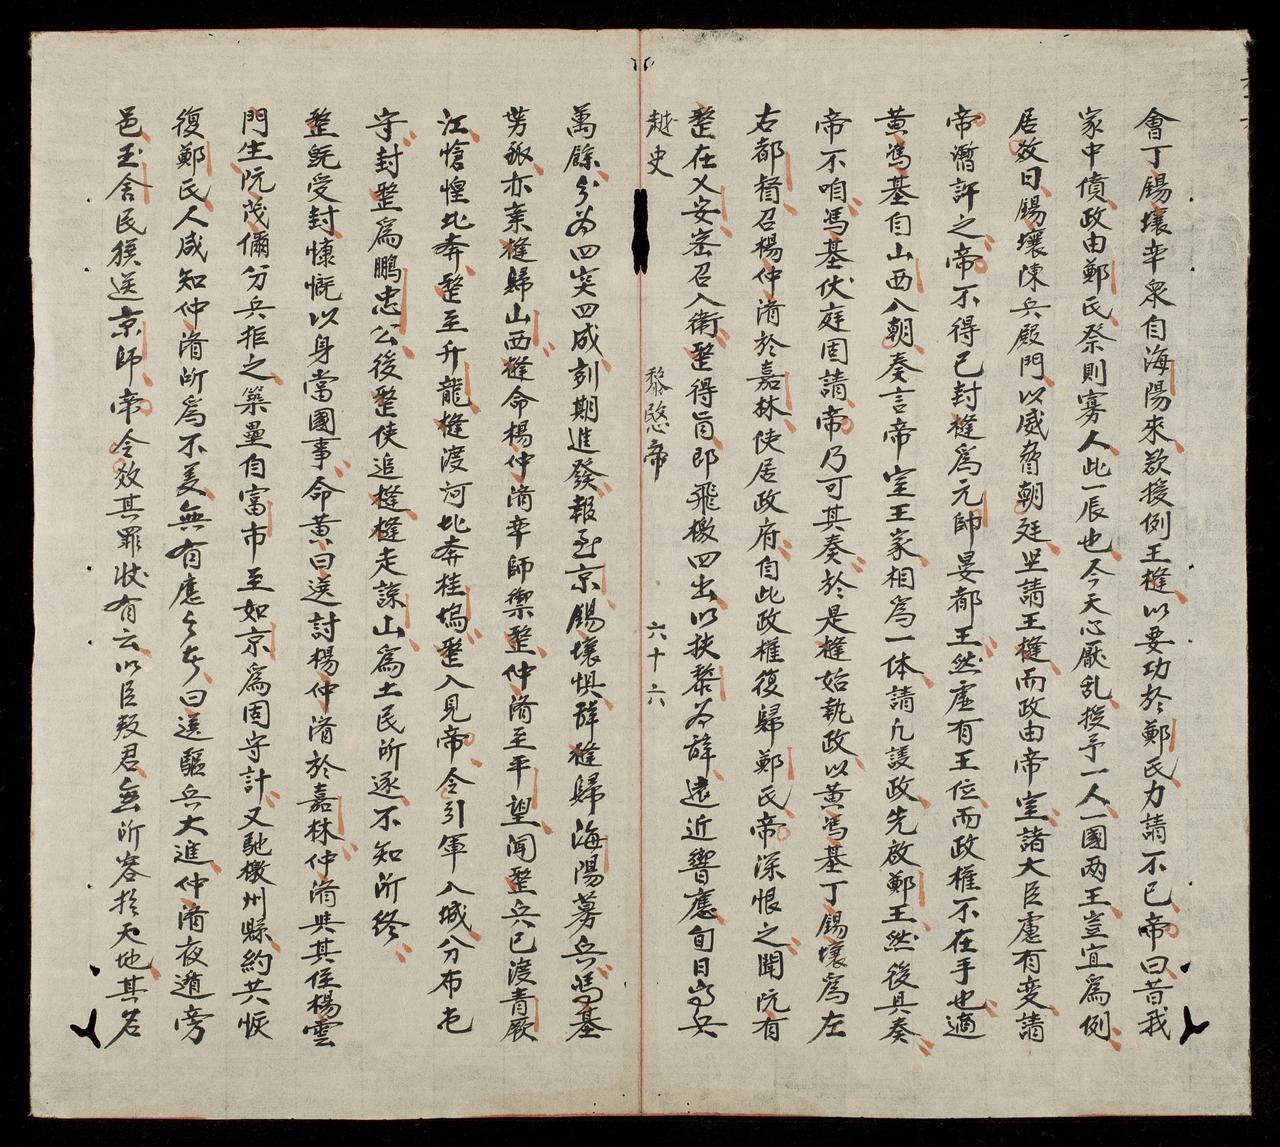 會丁錫壤率衆自海陽來欲援例王槰以要功於鄭氏力請不已帝曰昔我
家中債政由鄭氏祭則寡人此一辰也今天心厭乱授予一人一國两王豈宜爲例
居数日錫壤陳兵殿門以威脅朝廷且請王槰而政由帝室諸大臣慮有变請
帝暫許之帝不得已封槰爲元帥晏都王然虛有王位而政權不在手也適
黄馮基自山西入朝奏言帝室王家相爲一体請凡議政先啟鄭王然後具奏
帝不咱馮基伏庭固請帝乃可其奏於是槰始執政以黄馮基丁錫壤爲左
右都督召楊仲濟於嘉林使居政府自此政權復歸鄭氏帝深恨之聞阮有
整在乂安密召入衛整得旨即飛檄四出以扶黎为辞遠近響應旬日得兵
越史
黎愍帝
六十六
萬餘分为四突四成刻期進發報至京錫壤惧辞槰歸海陽募兵馮基
芳𣸣亦棄槰歸山西槰命楊仲濟率師禦整仲濟至平望聞整兵已渡青厥
江愴惶北奔整至升龍槰渡河北奔桂塢整入見帝令引軍入城分布屯
守封整爲鵬忠公後整使追槰槰走諒山爲土民所逐不知所終
整既受封慷慨以身當國事命黄曰選討楊仲濟於嘉林仲濟與其侄楊雲
門生阮茂儞分兵拒之築壘自富市至如京爲固守計又馳檄州縣約共恢
復鄭氏人咸知仲濟所爲不美無有應之者曰選驅兵大進仲濟夜遁旁
邑玉舍民獲送京師帝令效其罪状有云以臣叛君無所容於天地其名